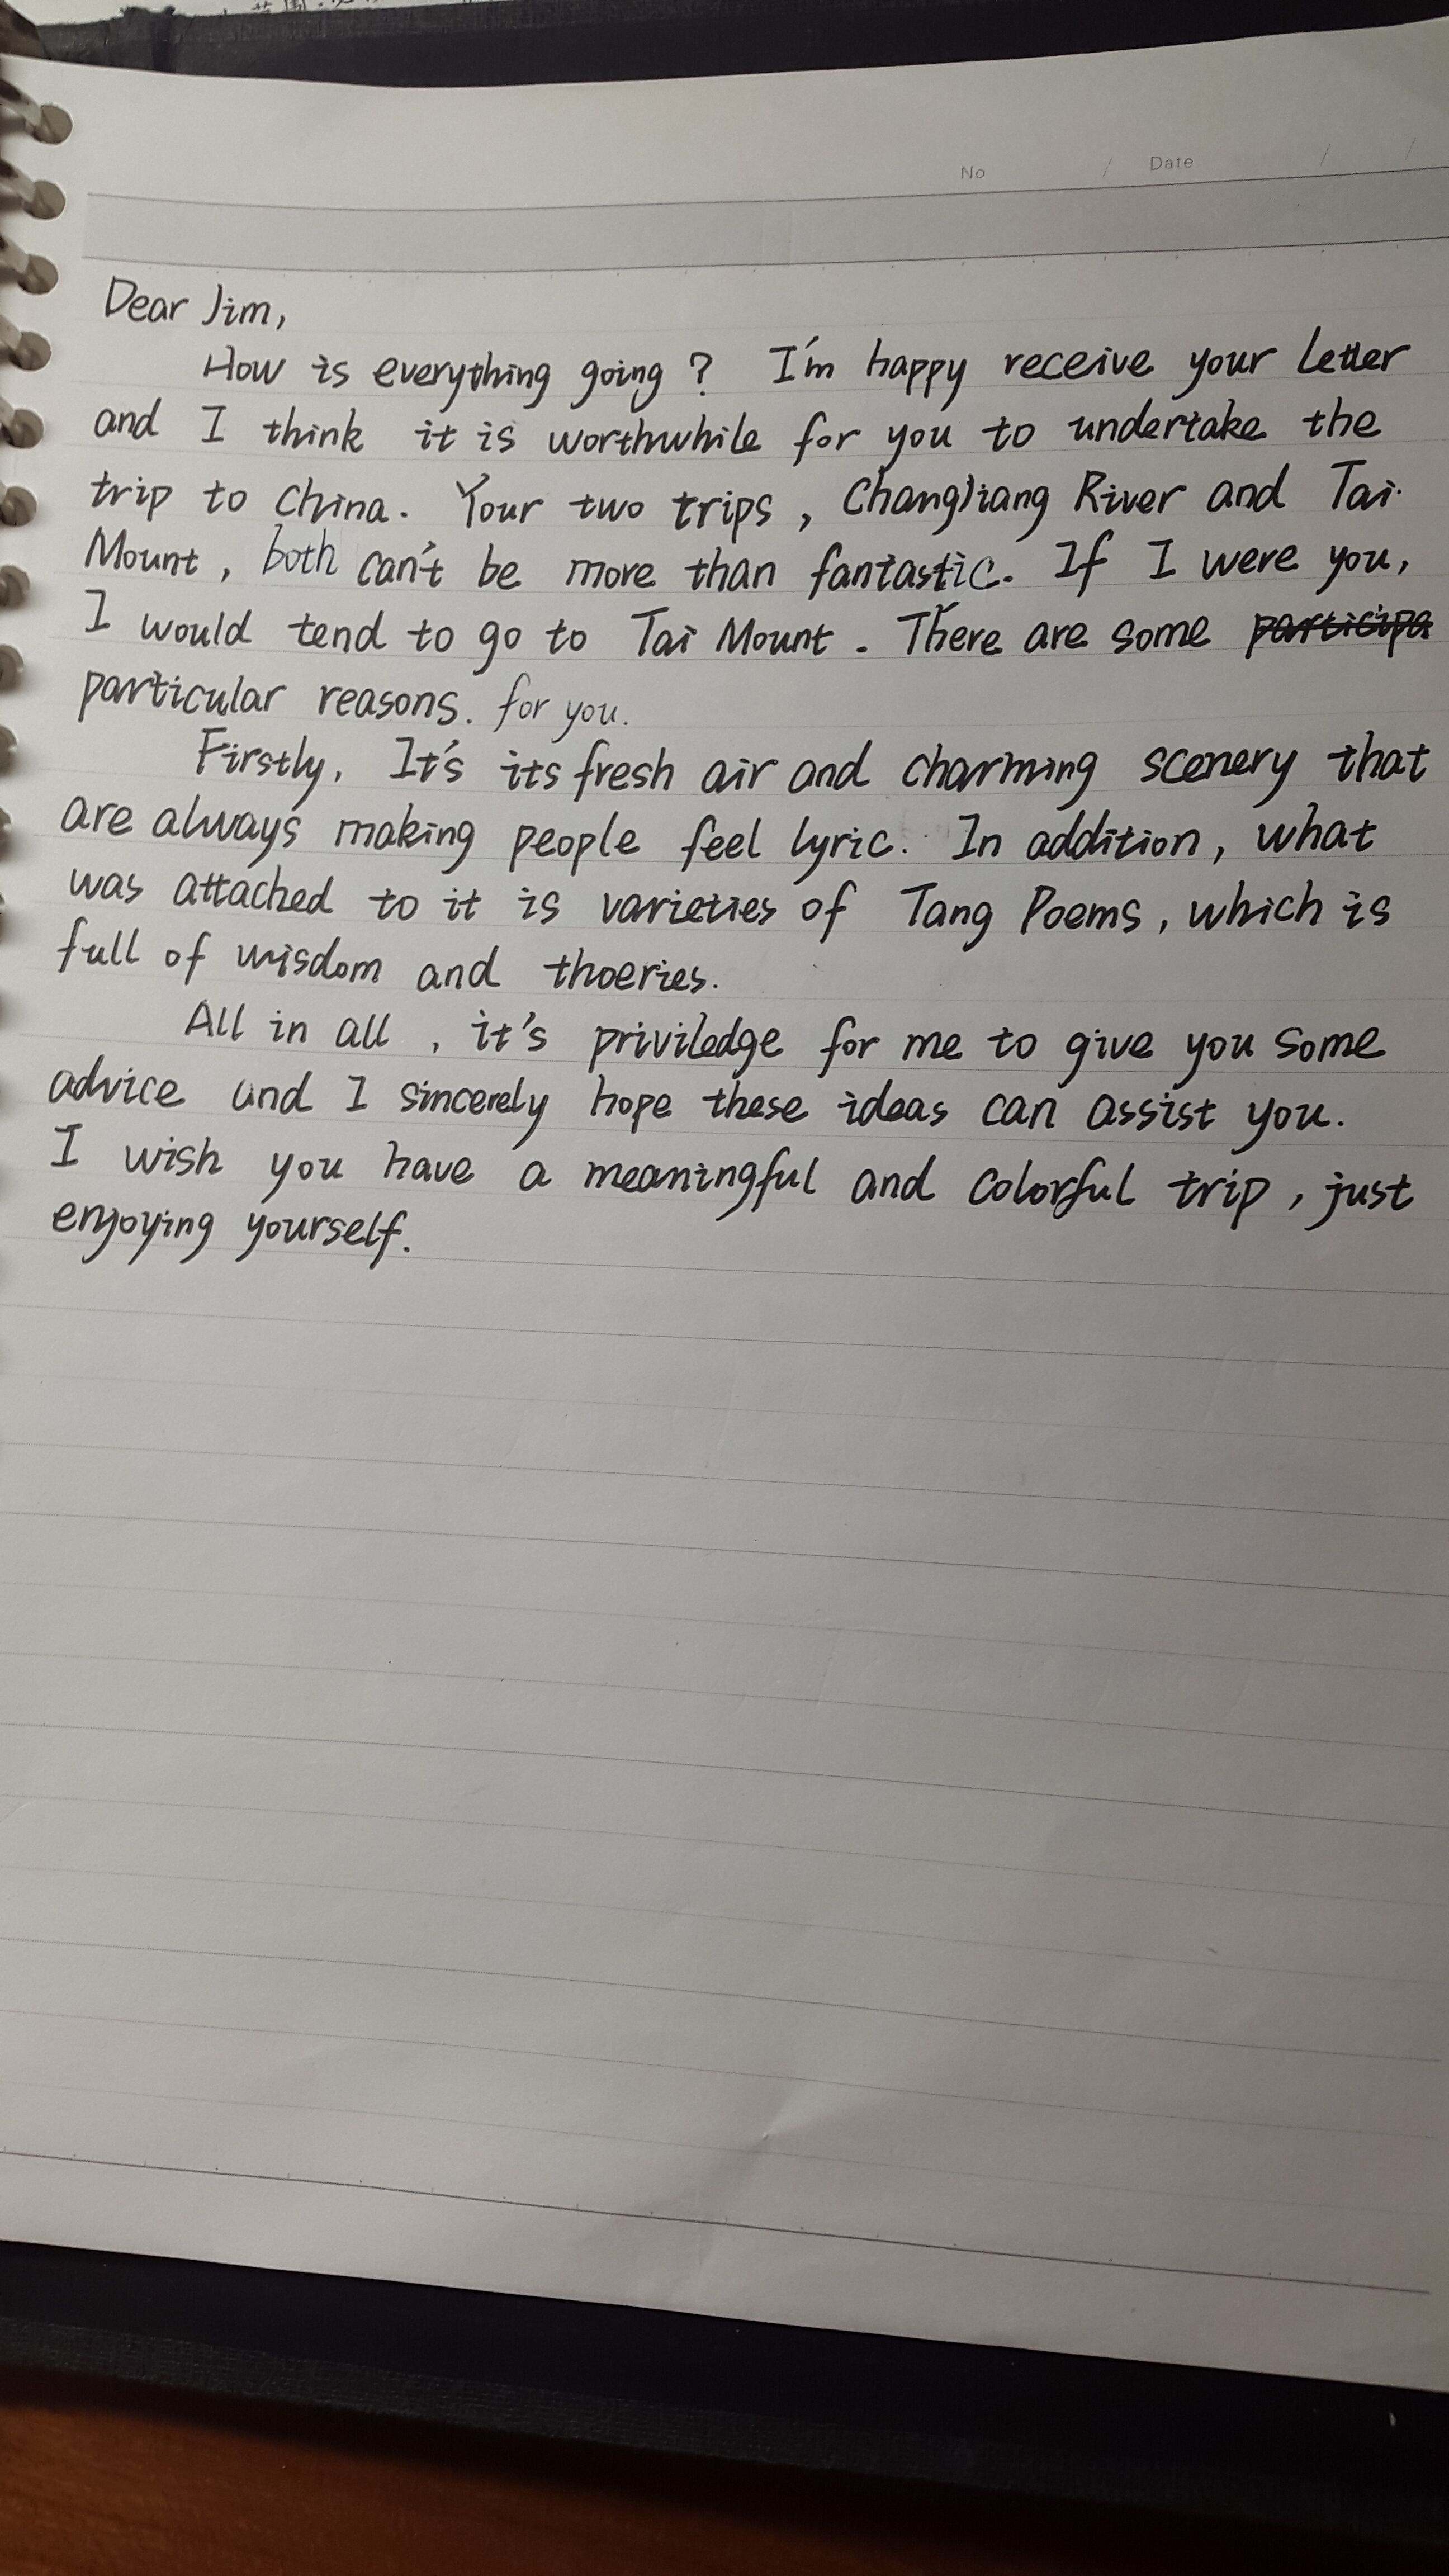 No / Date / /
Dear Jim,
How is everything going ? I'm happy receive your letter
and I think it is worthwhile for you to undertake the
trip to China. Your two trips, Changjiang River and Tai
Mount, both can't be more than fantastic. If I were you,
I would tend to go to Tai Mount. There are some participa
particular reasons. for you.
Firstly, It's its fresh air and charming scenery that
are always making people feel lyric. In addition, what
was attached to it is varieties of Tang Poems, which is
full of wisdom and thoeries.
All in all, it's priviledge for me to give you some
advice and I sincerely hope these ideas can assist you.
I wish you have a meaningful and colorful trip, just
enjoying yourself.